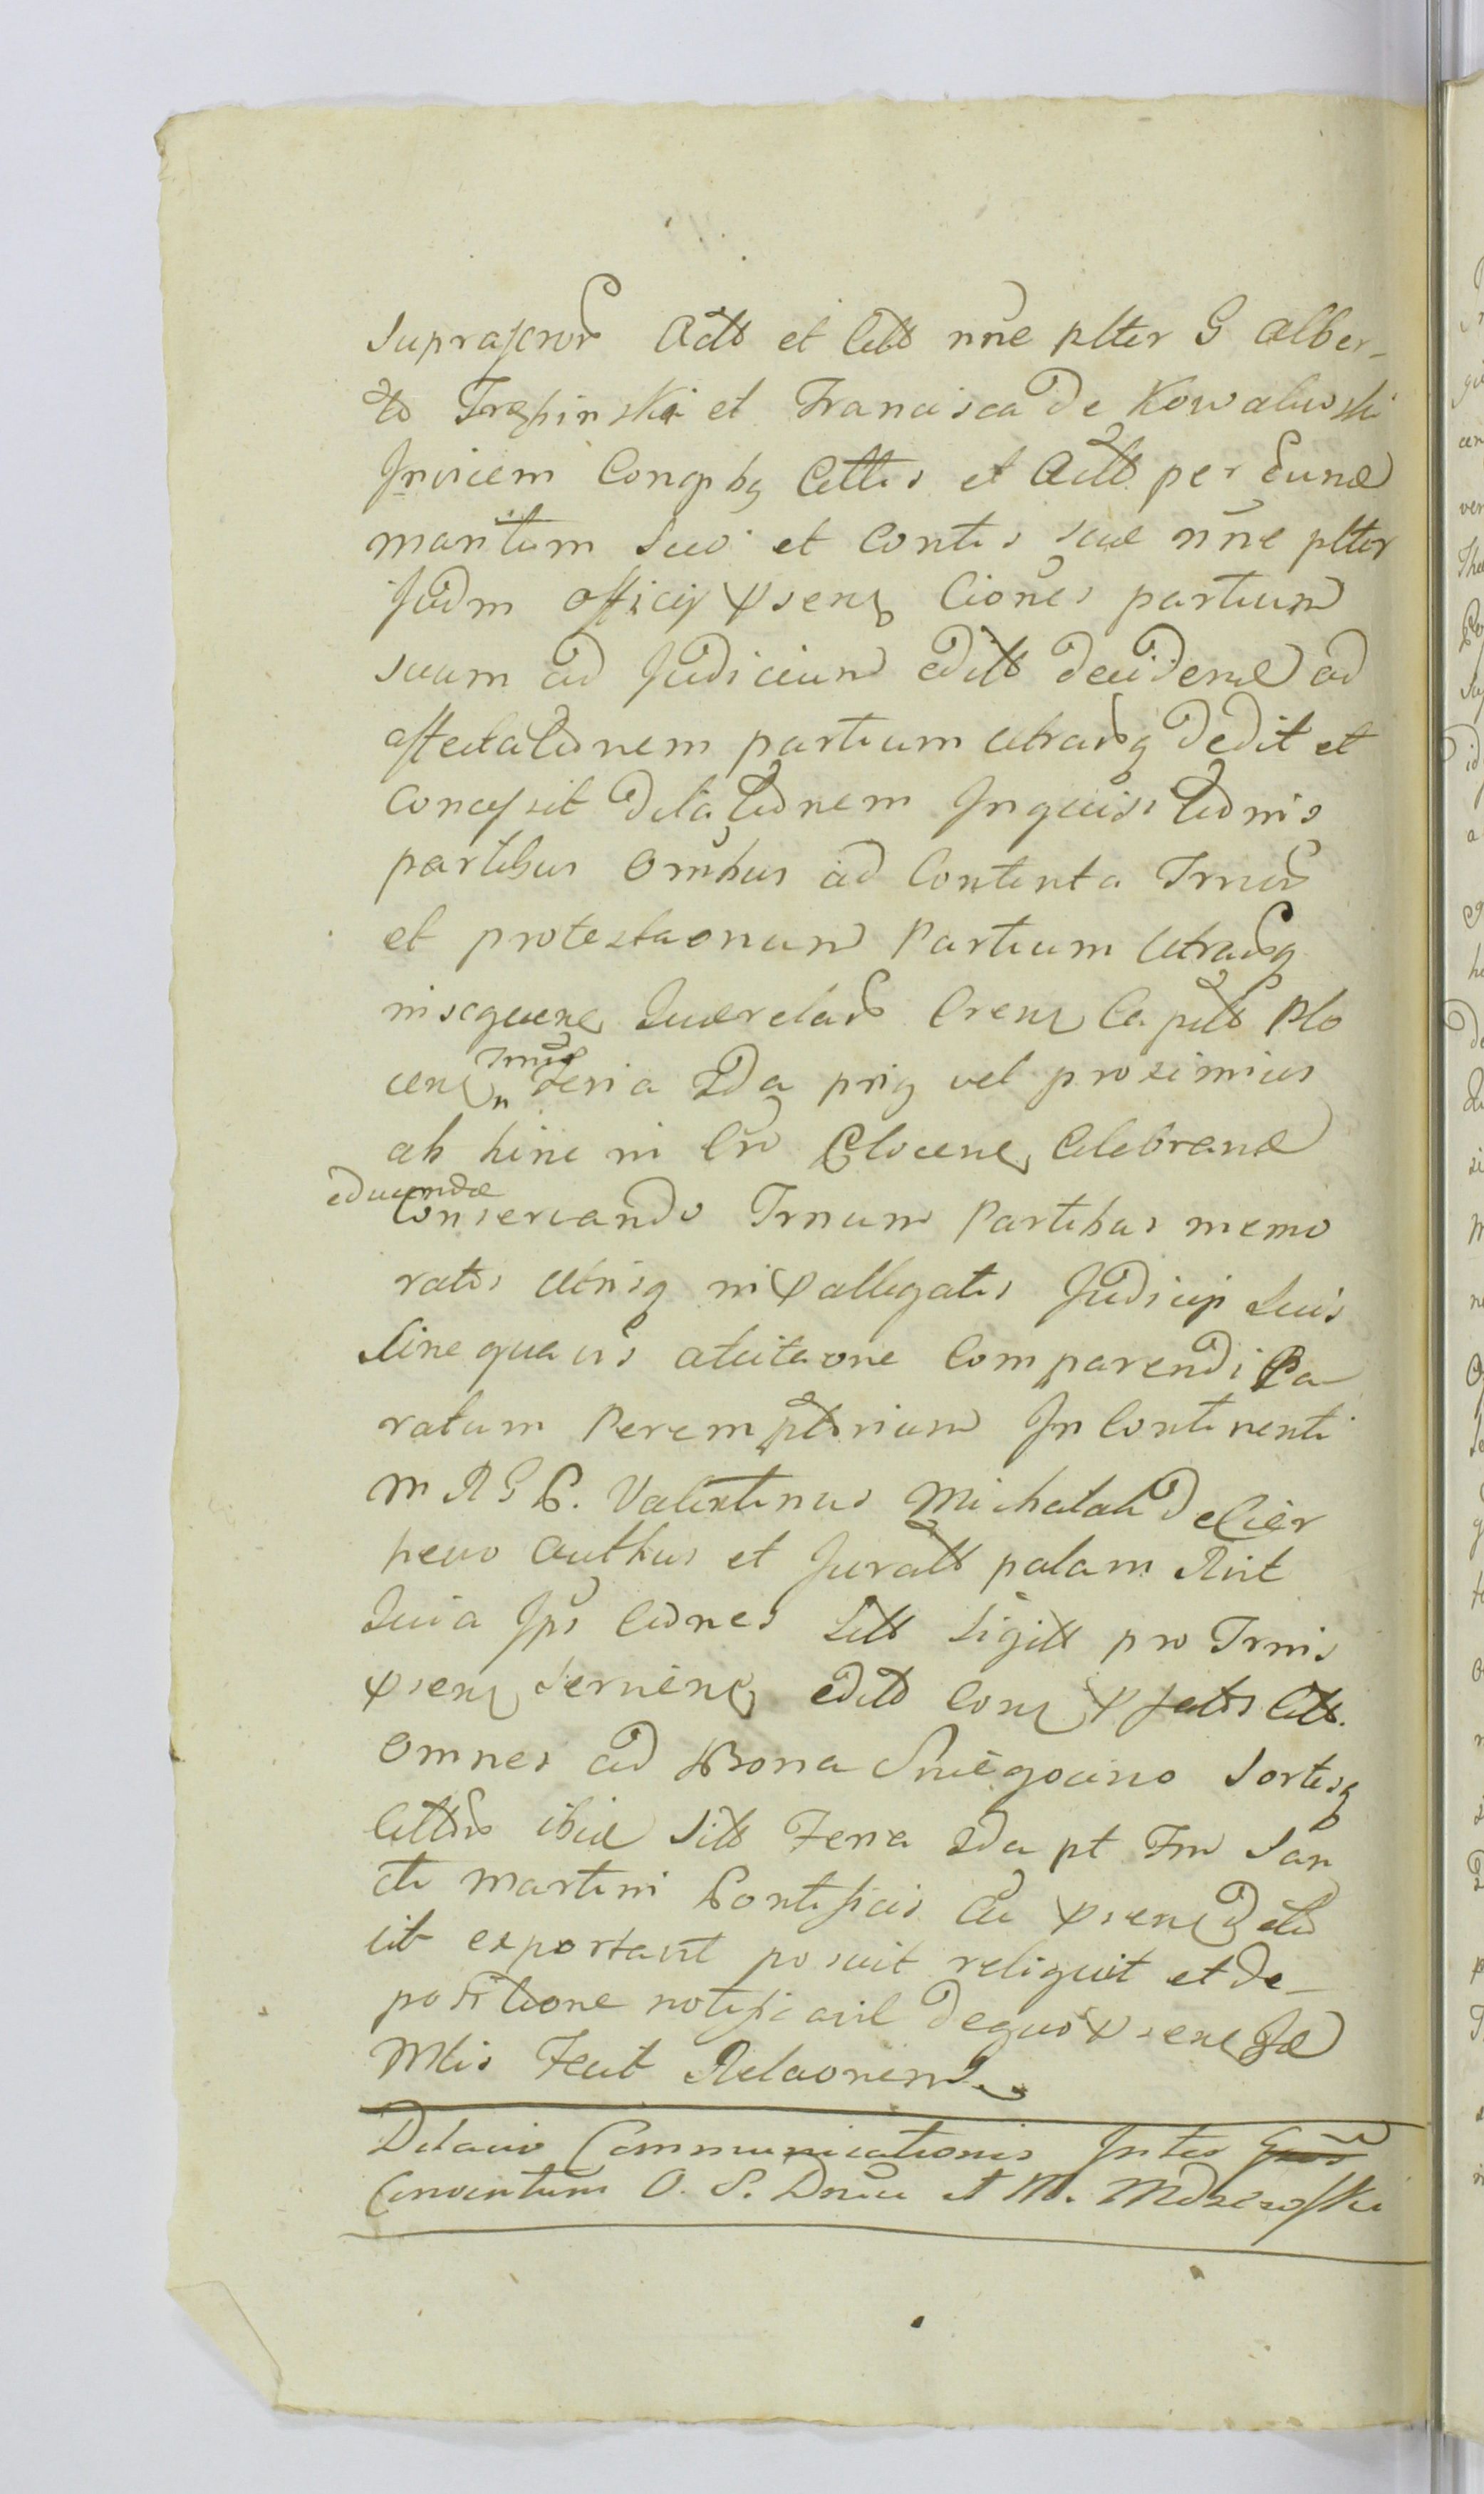 suprascror Actt et Citt nne pltter G Alber-
to Trepinski et Francisca de Kowalewski
Invicem Conqbg Citts et Actt per Eund
maritum suo et Contis sue nne pltter
Judm officij psens Ciones partium
suam ad Judicium editt decidend ad
affectationem partium utrasq dedit et
Concessit dilationem Inquisitionis
partibus omnbus ad Contenta Trnor
et protestaonum Partium Utrasq
insequen Querelas Crens Capitt Plo
cens Trnis feria 2da priq vel proximius
ab hinc in Cro Plocens Celebrand
educenda
Conservando Trnum Partibus memo
ratis Utrisq in pallegatis Judicijs suis
sine quavis atcitaone Comparendi Pa
ratum Peremptorium In Continenti
M R G P. Valentinus Michalak de Cier
pewo Authus et Juratt palam Rnt
Quia Ips Ciones Litt Sigitt pro Trnis
psens servien editt Cons pfatos Citt.
omnes ad Bona Sniegocino sortesq
Cittor ibid sitt Feria 2da pt Fm San
cti Martini Pontificis Au psens deto
lit exportavit posuit reliquit et de-
positione notificavit de quo psens Id
Mtis Fecit Relaonem.
Dilacio Communicationis Inter Gnos
Conventum O. S. Dnici et M. Mdzezoski